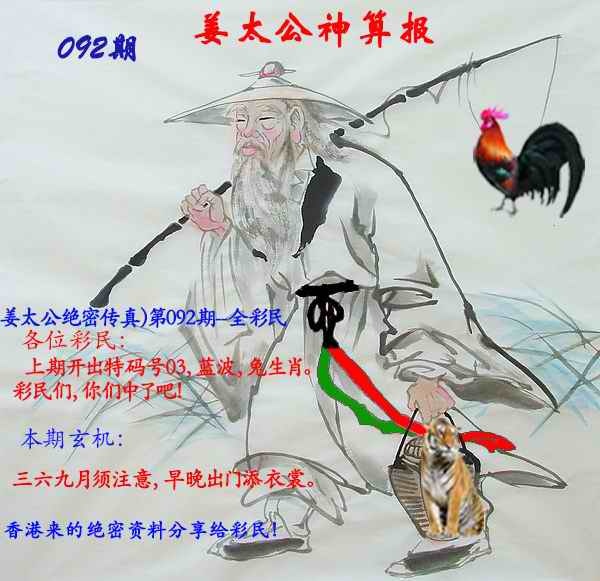 姜太公神算报
092期
姜太公绝密传真)第092期--全彩民
各位彩民:
上期开出特码号03,蓝波,兔生肖。
彩民们,你们中了吧!
本期玄机:
三六九月须注意,早晚出门添衣裳。
香港来的绝密资料分享给彩民!